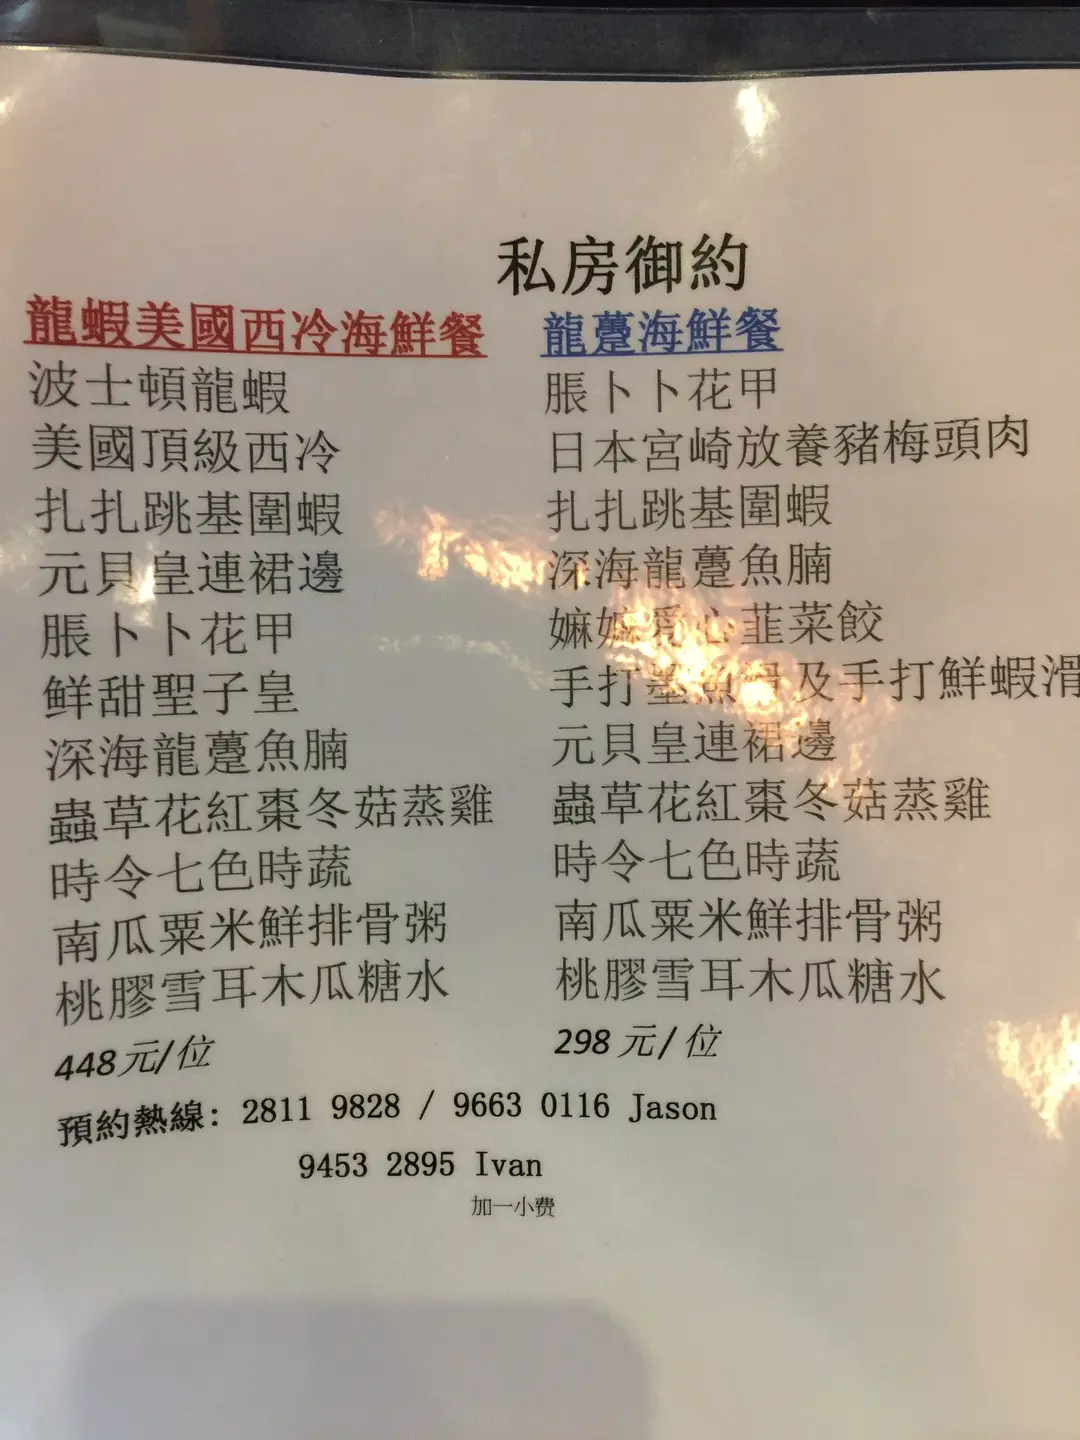 私房御約
龍蝦美國西冷海鮮餐
波士頓龍蝦
美國頂級西冷
扎扎跳基圍蝦
元貝皇連裙邊
脹卜卜花甲
鮮甜聖子皇
深海龍躉魚腩
蟲草花紅棗冬菇蒸雞
時令七色時蔬
南瓜粟米鮮排骨粥
桃膠雪耳木瓜糖水
448元/位
龍躉海鮮餐
脹卜卜花甲
日本宮崎放養豬梅頭肉
扎扎跳基圍蝦
深海龍躉魚腩
嫲嫲心韮菜餃
手打墨魚滑及手打鮮蝦滑
元貝皇連裙邊
蟲草花紅棗冬菇蒸雞
時令七色時蔬
南瓜粟米鮮排骨粥
桃膠雪耳木瓜糖水
298 元/ 位
預約熱線: 2811 9828 / 9663 0116 Jason
9453 2895 Ivan
加一小费